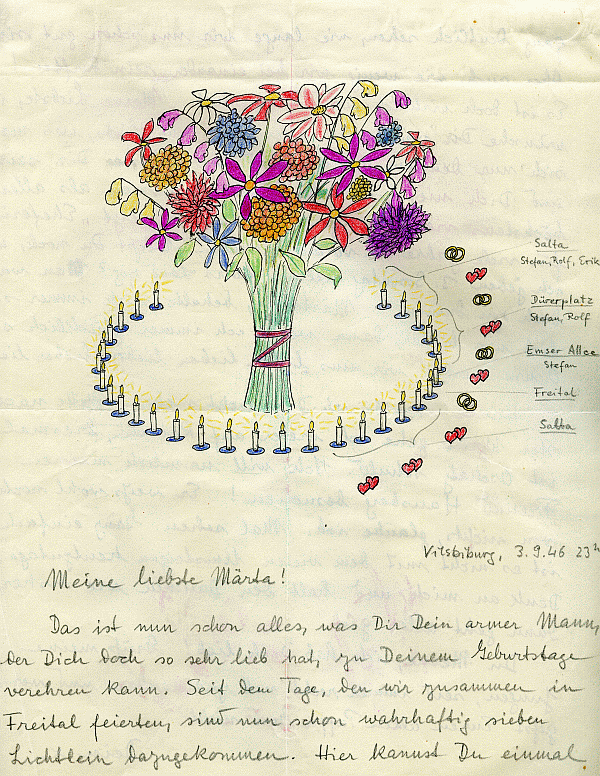 Salta
Stefan, Rolf, Erik
Dürerplatz
Stefan, Rolf
Emser Allee
Stefan
Freital
Sabba
Vilsbiburg, 3.9.46 23h
Meine liebste Märta!
Das ist nun schon alles, was Dir Dein armer Mann,
der Dich doch so sehr lieb hat, zu Deinem Geburtstage
verehren kann. Seit dem Tage, den wir zusammen in
Freital feierten, sind nun schon wahrhaftig sieben
Lichtlein dazugekommen. Hier kannst Du einmal